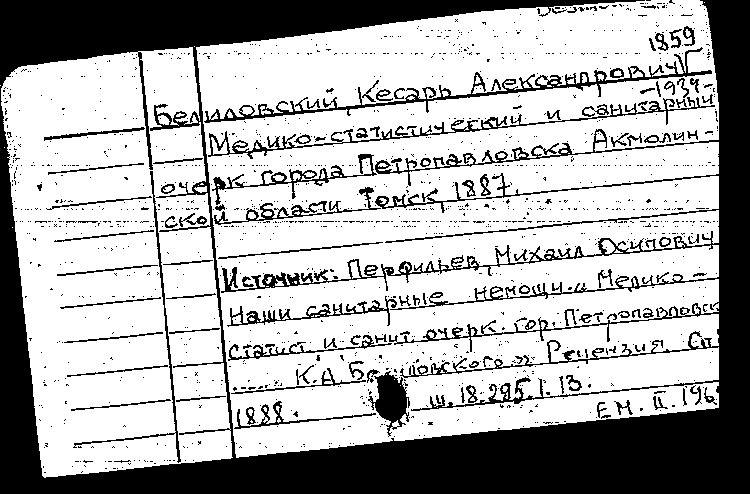 1859
Белиловский, Кесарь Александрович
-1934-
Медико-статистический и санитарный
очерк города Петропавловска Акмолин-
ской области. Томск, 1887.
Источник: Перфильев, Михаил Осипович
Наши санитарные немощи.,, Медико-
статист. и санит. очерк. гор. Петропавловск
..... К.А. Белиловского" Рецензия. Сп
1888. ш. 18.295.1.13.
Е М. II. 196